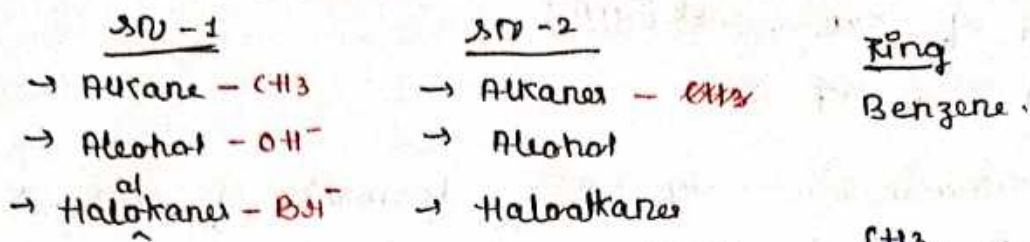 SN - 1
→ Alkane - CH3
→ Alcohol - OH⁻
→ Haloalkanes - Br⁻
SN - 2
→ Alkanes -
→ Alcohol
→ Haloalkanes
Ring
Benzene.
CH3